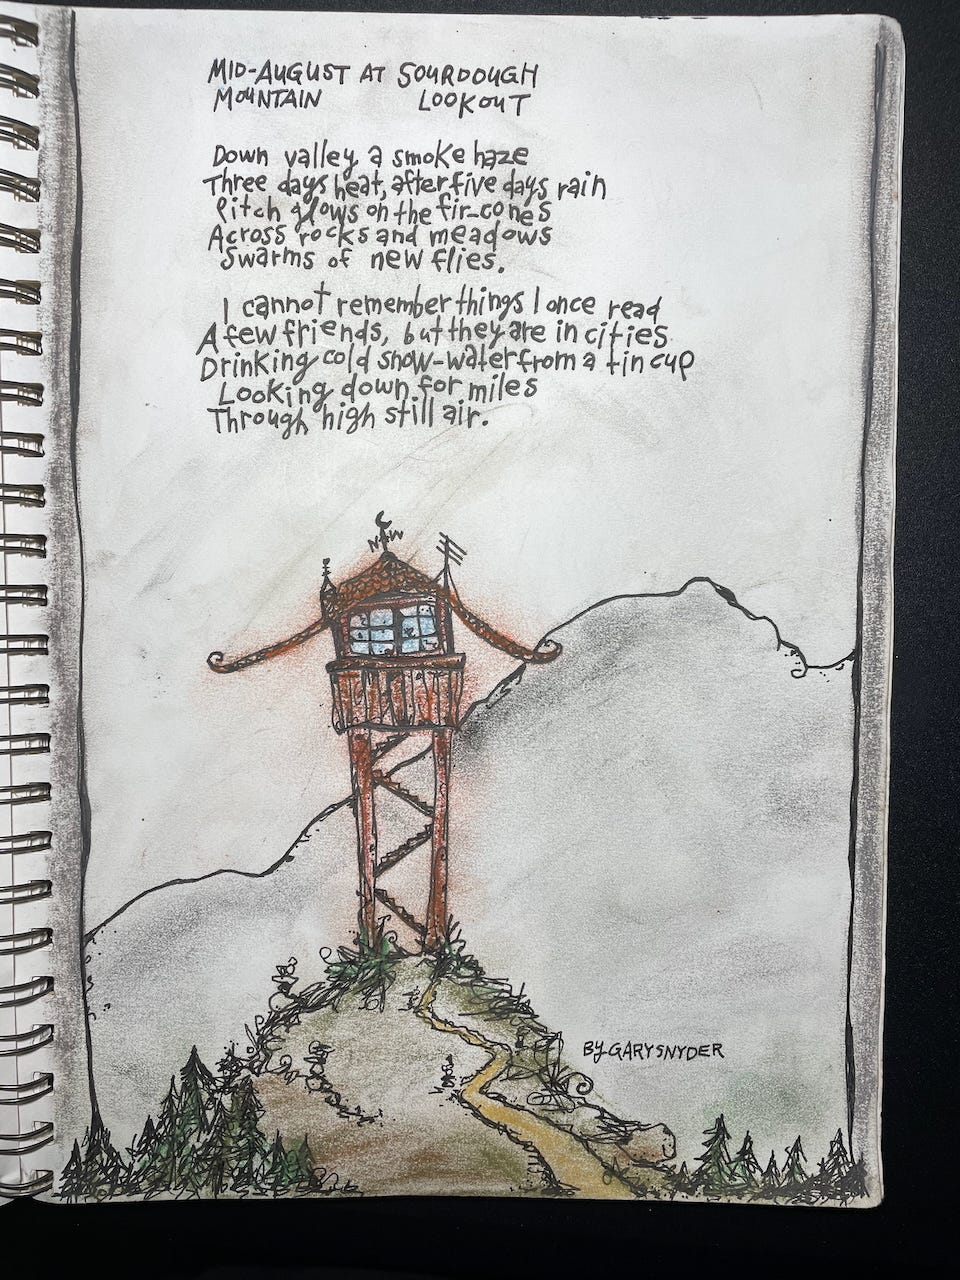 MID-AUGUST AT SOURDOUGH
MOUNTAIN LOOKOUT
Down valley a smoke haze
Three days heat, after five days rain
Pitch glows on the fir-cones
Across rocks and meadows
Swarms of new flies.
I cannot remember things I once read
A few friends, but they are in cities.
Drinking cold snow-water from a tin cup
Looking down for miles
Through high still air.
N W
BY GARY SNYDER